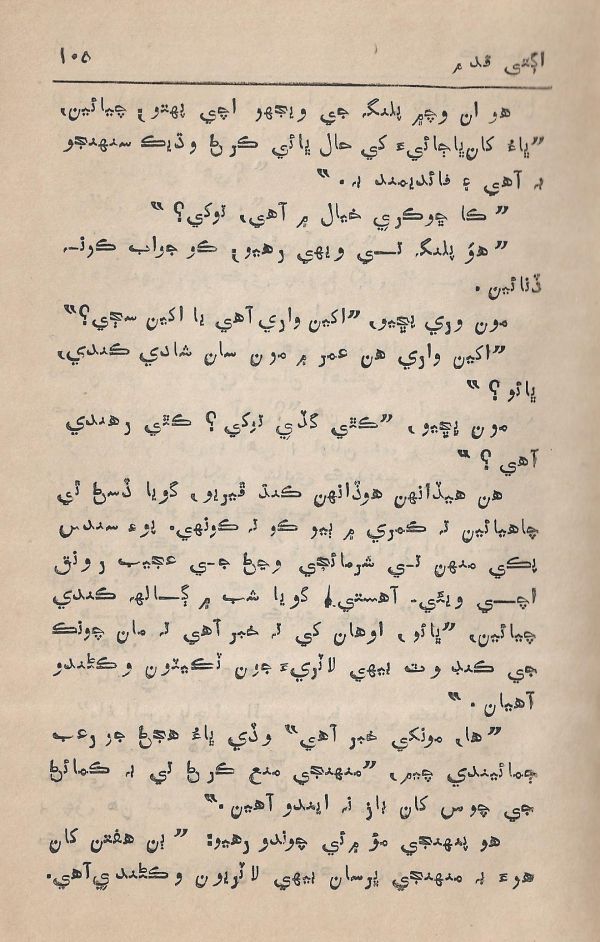 اڳتي قدم ۱۰۵
هو ان وچ ۾ پلنگہ جي ويجهو اچي پهتو، چيائين،
”ڀاءُ کان ڀاڄائيءَ کي حال ڀائي ڪرڻ وڌيڪ سنهنجو
بہ آهي ۽ فائديمند بہ.“
”ڪا ڇوڪري خيال ۾ آهي، توکي؟“
”هوُ پلنگہ تي ويهي رهيو، ڪو جواب ڪونہ
ڏنائين.
مون وري پڇيو، ”اکين واري آهي يا اکين سڄي؟“
”اکين واري هن عمر ۾ مون سان شادي ڪندي،
ڀائو؟“
مون پڇيو، ”ڪٿي گڏي ٿيڪي؟ ڪٿي رهندي
آهي؟“
هن هيڏانهن هوڏانهن ڪنڌ ڦيريو، گويا ڏسڻ ٿي
چاهيائين تہ ڪمري ۾ ٻيو ڪو تہ ڪونهي. پوءِ سندس
پڪي منهن تي شرمائجي وڃڻ جي عجيب رونق
اچي ويئي. آهستي، گويا شب ۾ ڳالهہ ڪندي
چيائين، ”ڀائو، اوهان کي تہ خبر آهي تہ مان چونڪ
جي ڪنڊ وٽ بيهي لاٽريءَ جون ٽڪيٽون وڪڻندو
آهيان.“
”ها، مونکي خبر آهي“ وڏي ڀاءُ هجڻ جو رعب
ڄمائيندي چيم، ”منهنجي منع ڪرڻ تي بہ ڪمائڻ
جي چوس کان باز نہ ايندو آهين.“
هو پنهنجي مؤ ۾ ئي چوندو رهيو: ”ٻن هفتن کان
هوءَ بہ منهنجي ڀرسان بيهي لاٽريون وڪڻندي آهي.